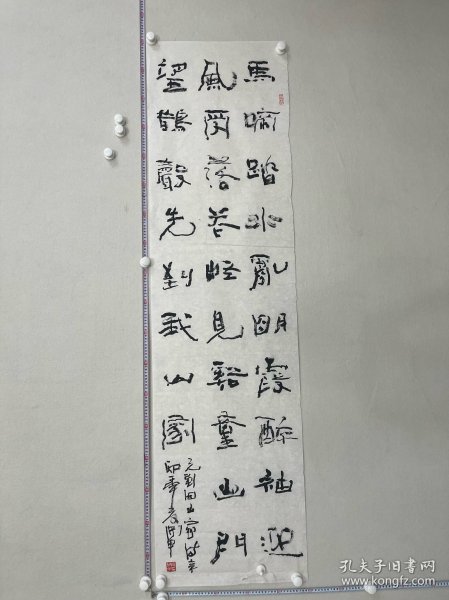 馬蹄踏水亂明霞醉袖迎
風受落花怪見谿童出門
望鵲聲先到我山家
元劉因山家詩
孔夫子旧书网
www.kongfz.com